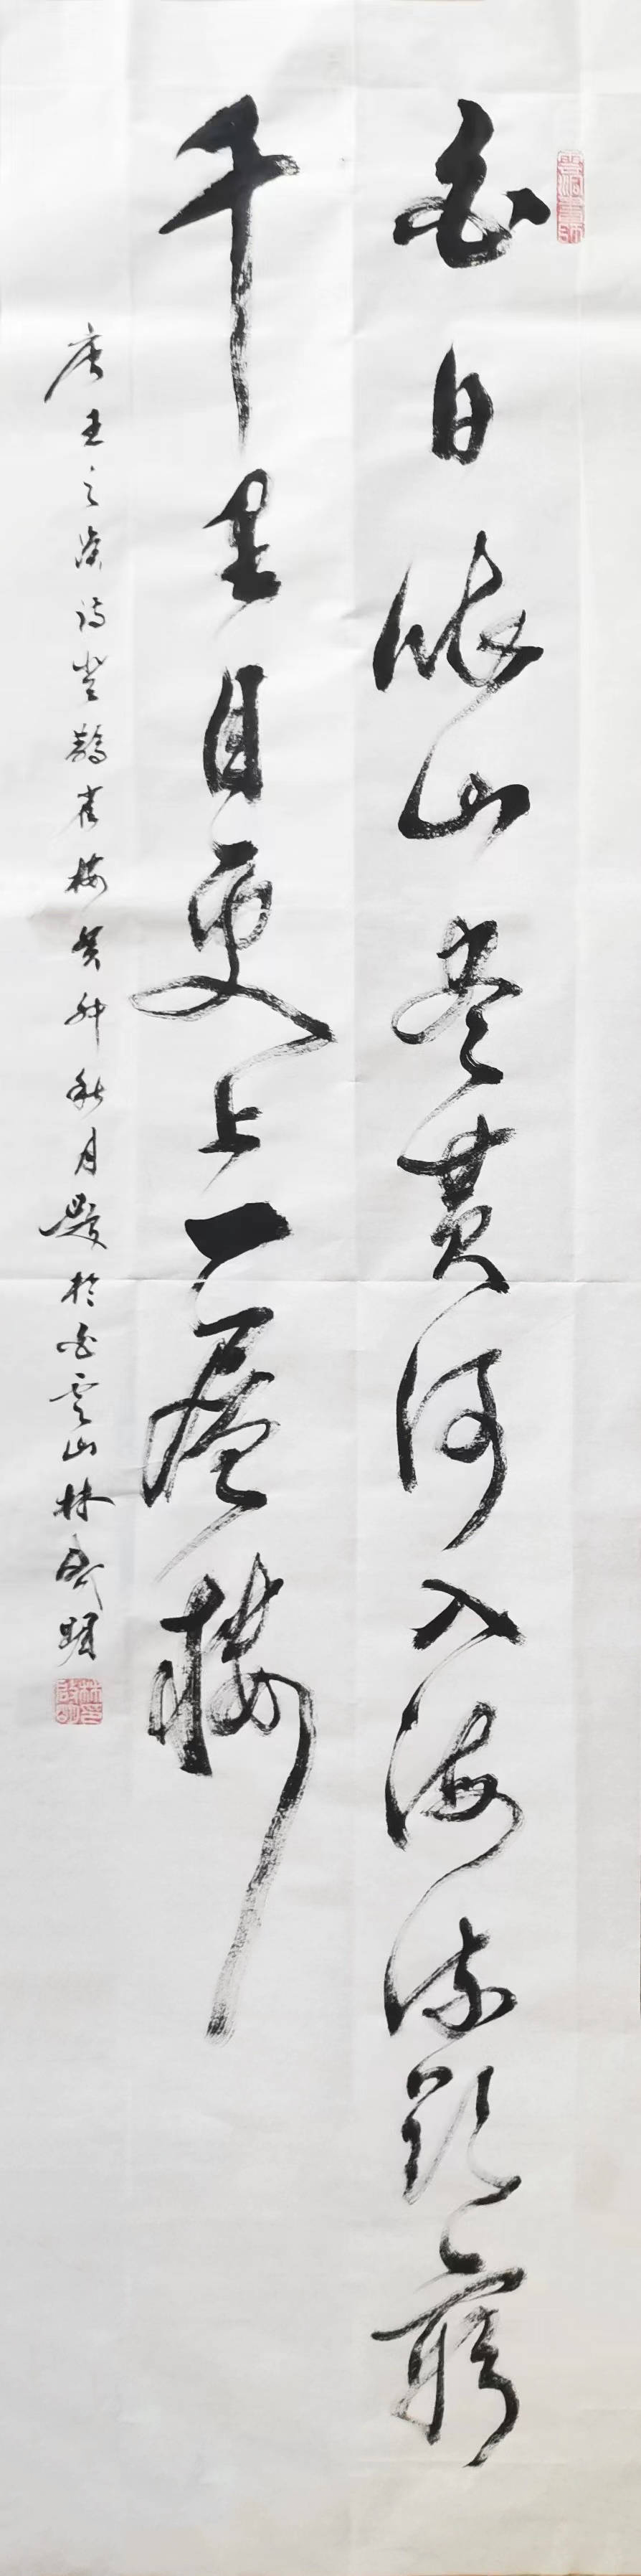 白日依山尽黄河入海流欲穷
千里目更上一层楼
唐王之涣诗登鹳雀楼癸卯秋月题于白云山林启明